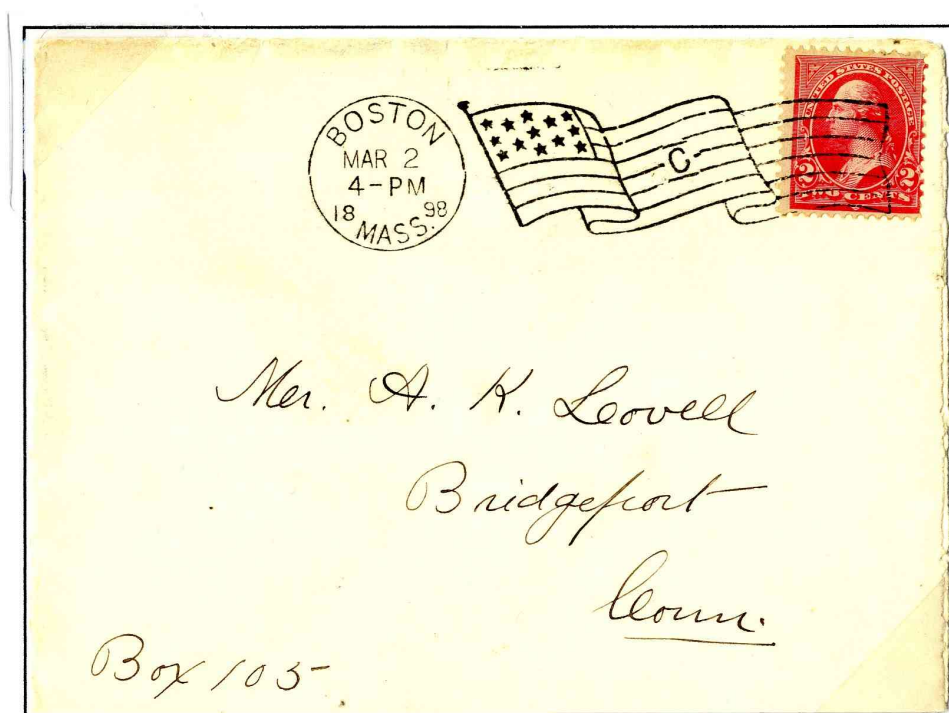 BOSTON
MAR 2
4-PM
18 98
MASS.
C
UNITED STATES POSTAGE
2 TWO CENTS 2
Mr. A. K. Lovell
Bridgeport
Conn.
Box 105